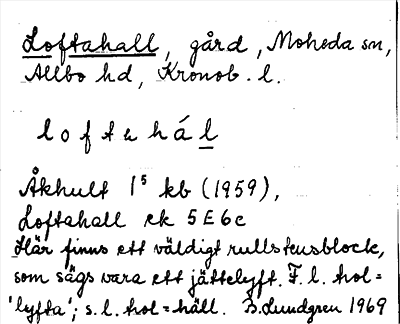 Loftahall, gård, Moheda sn,
Allbo hd, Kronob. l.
loftahál
Åkhult 1⁵ kb (1959),
Loftahall ek 5E6c
Här finns ett väldigt rullstensblock,
som sägs vara ett jättelyft. F. l. trol=
'lyfta'; s. l. trol=häll. B. Lundgren 1969